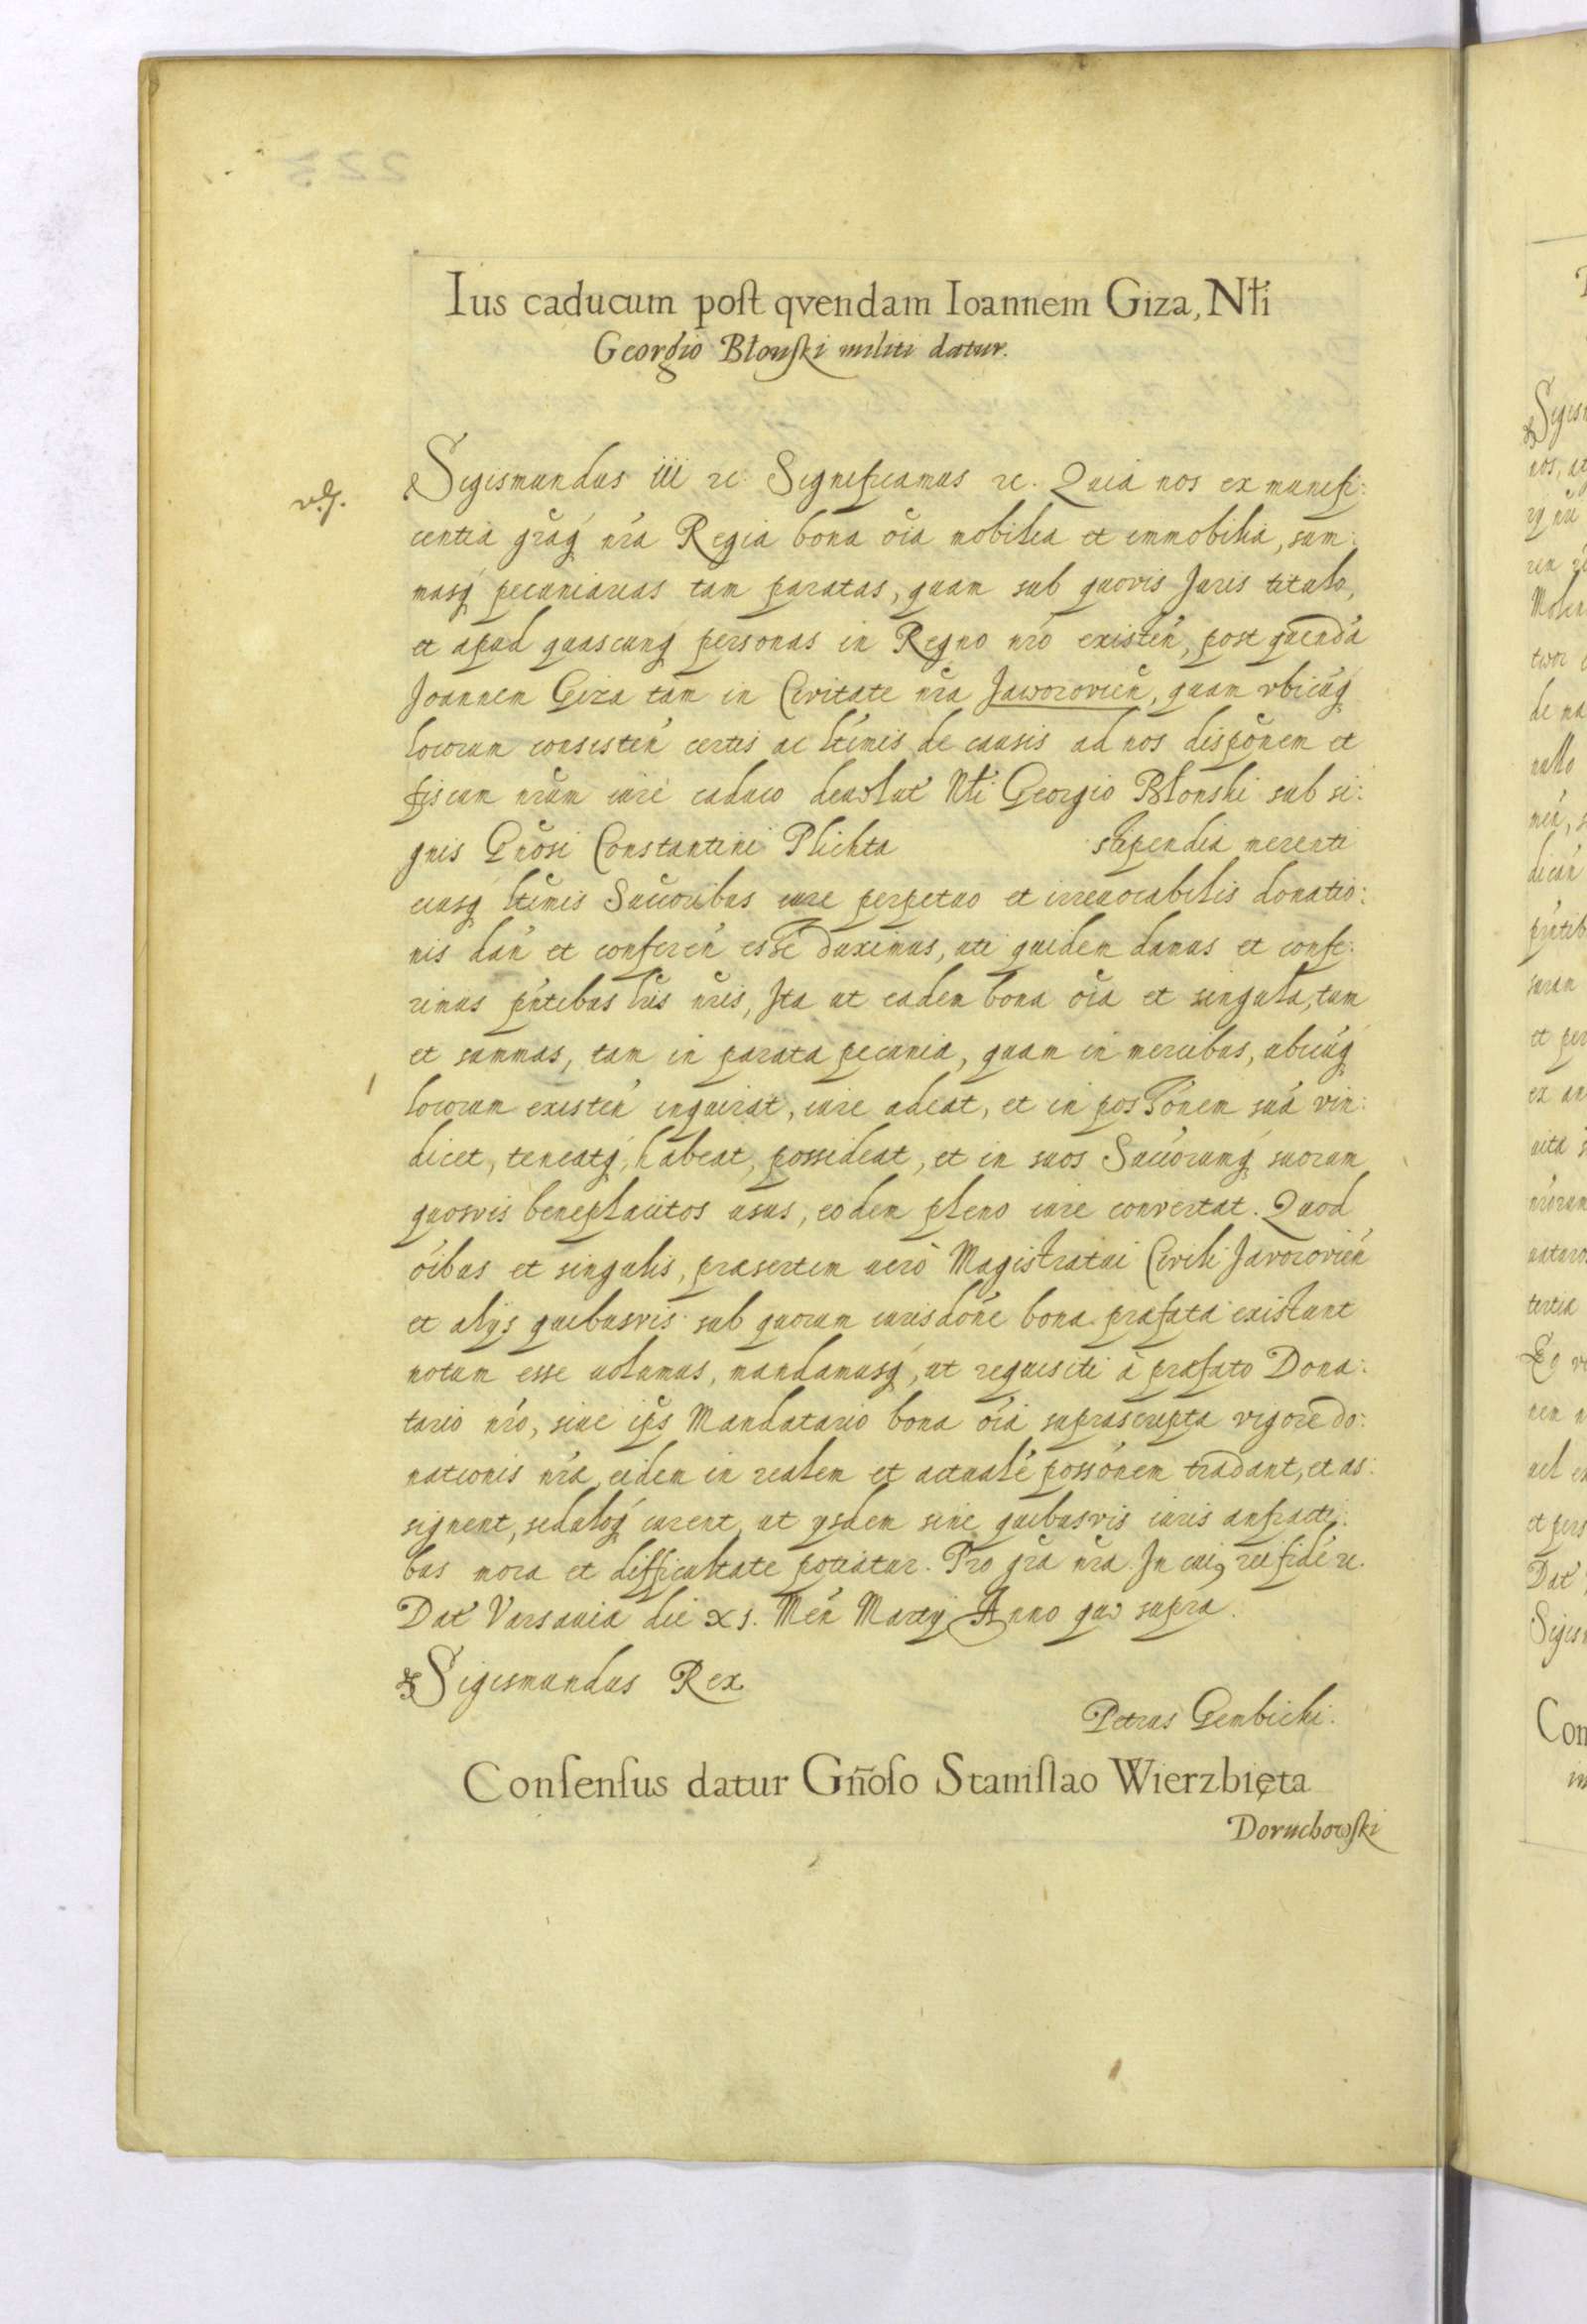 Ius caducum post qvendam Ioannem Giza, Nłi
Georgio Błonski militi datur.
Sigismundus iii rc: Significamus rc. Quia nos ex munifi:
centia grãq́ nrã Regia bona oĩa mobilia et immobilia, sum:
masq́ pecuniarias tam paratas, quam sub quovis Juris titulo,
et apud quascunq́ personas in Regno nrõ existeñ, post quendã
Joannem Giza tam in Civitate nrã Jaworovieñ, quam vbicũq́
locorum consisteñ certis ac ltĩmis de causis ad nos dispõnem et
fiscum nrũm iure caduco deuolut Nłi Georgio Błonski sub si:
gnis Gnõsi Constantini Plichta stipendia merenti
eiusq́ ltĩmis Succõribus iure perpetuo et irreuocabilis donatio:
nis dañ et confereñ esse duximus, uti quidem damus et confe:
rimus pñtibus lrĩs nrĩs, Jta ut eadem bona oĩa et singula, tum
et summas, tam in parata pecunia, quam in mercibus, ubicũq́
locorum existeñ inquirat, iure adeat, et in possõnem suã vin:
dicet, teneatq́, habeat, possideat, et in suos Succõrumq́ suorum
quosvis beneplacitos usus, eodem pleno iure convertat. Quod
oĩbus et singulis, præsertim uerò Magistratui Civili Javorovieñ
et alijs quibusvis sub quorum iurisdõne bona præfata existunt
notum esse uolumus, mandamusq́, ut requisiti à præfato Dona:
tario nrõ, siue ipŝ Mandatario bona oĩa suprascripta vigore do:
nationis nræ, eidem in realem et actualẽ possõnem tradant, et as:
signent, seduloq́ curent, ut ijsdem sine quibusvis iuris anfracti:
bus mora et difficultate potiatur. Pro grã nrã. Jn cuiꝯ rei fidẽ rc.
Dat Varsauiæ die xj. Meñ Martij Anno quo supra.
Sigismundus Rex
Petrus Gembicki.
Consensus datur Gñoso Stanislao Wierzbięta
Doruchowski